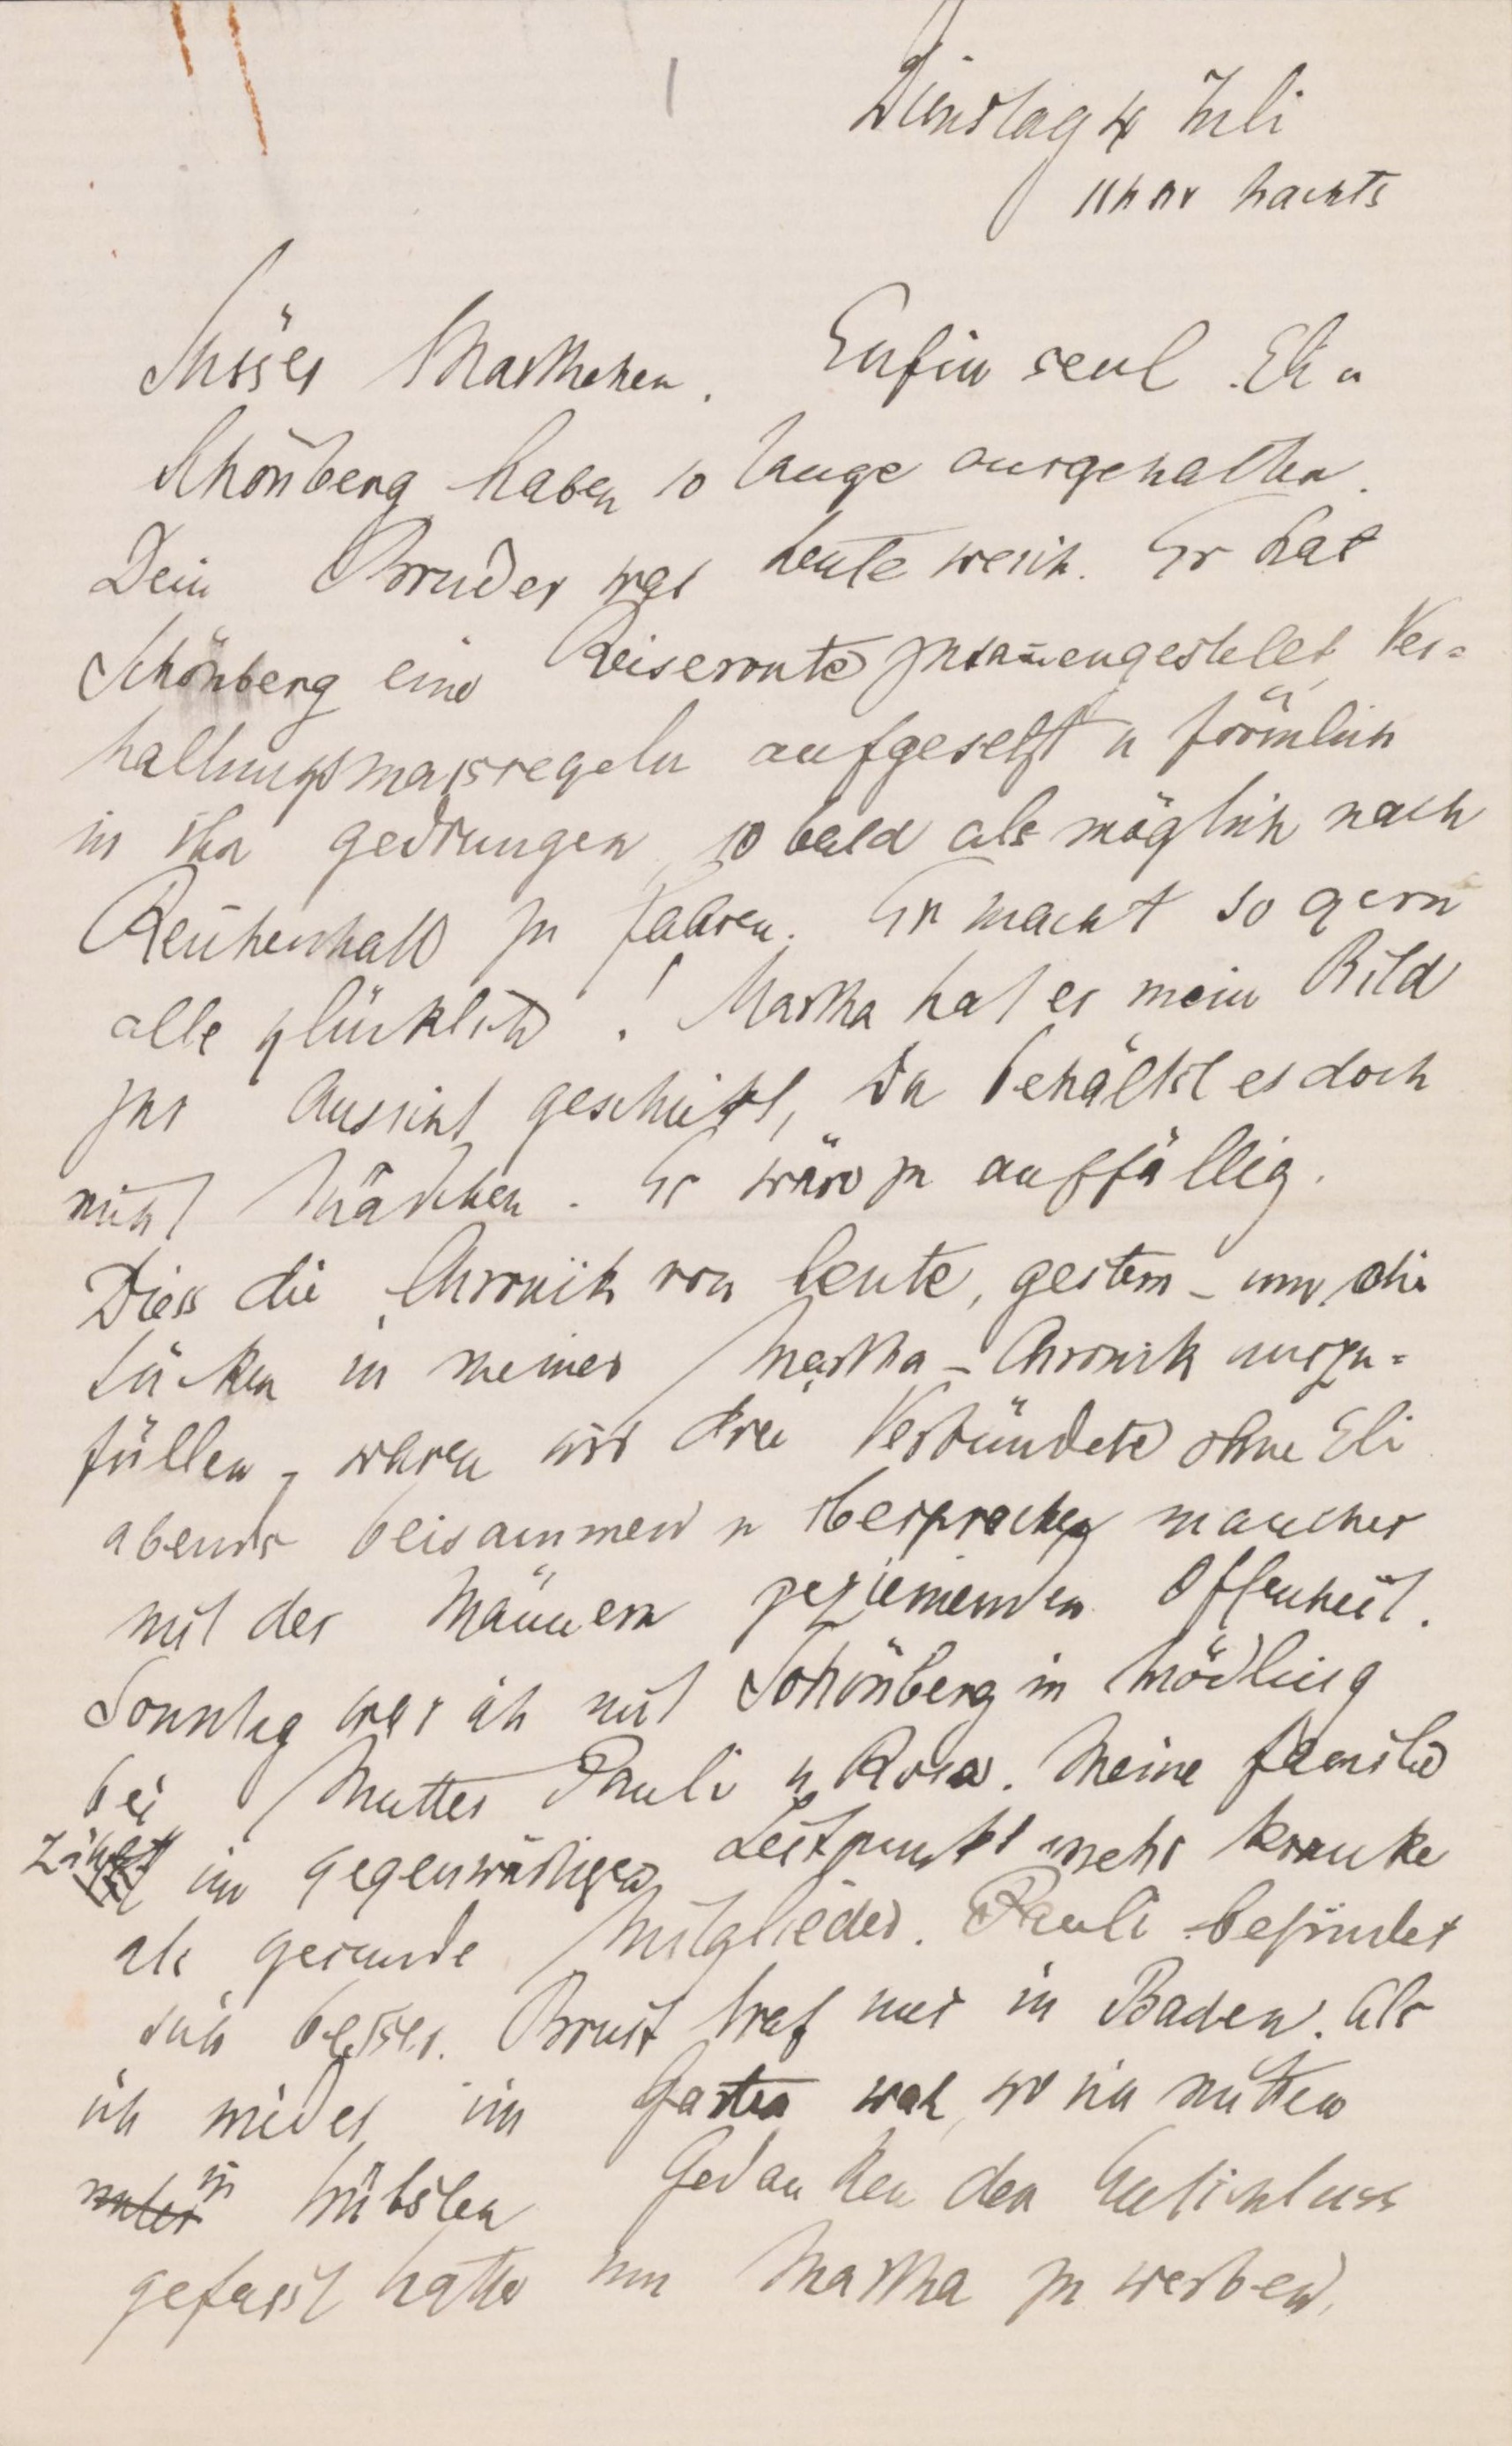 Dienstag 4 Juli
11 Uhr nachts
Süsses Marthchen. Enfin seul. Eli u
Schönberg haben so lange ausgehalten.
Dein Bruder war heute weich. Er hat
Schönberg eine Reiseroute zusam̅engestellt, Ver=
haltungsmassregeln aufgesetzt u förmlich
in ihn gedrungen, so bald als möglich nach
Reichenhall zu fahren. Er macht so gern
alle glücklich! Martha hat er mein Bild
zur Ansicht geschickt, Du behältst es doch
nicht Mädchen. Es wäre zu auffällig.
Diess die Chronik von heute, gestern – um die
Lücken in meiner Martha-Chronik auszu=
füllen, waren wir drei Verbündete ohne Eli
abends beisammen u besprachen manches
mit der Männern geziemenden Offenheit.
Sonntag war ich mit Schönberg in Mödling
bei Mutter Pauli u Rosa. Meine Familie
zählt im gegenwärtigen Zeitpunkt mehr kranke
als gesunde Mitglieder. Pauli befindet
sich besser. Brust traf mich in Baden. Als
ich wieder im Garten war, wo ich mitten
in trübsten Gedanken den Entschluss
gefasst hatte um Martha zu werben,